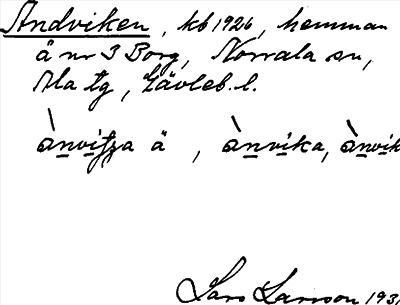 Andviken, kb 1926, hemman
å nr 3 Borg, Norrala sn,
Ala tg, Gävleb. l.
ànvitza ä , ànvika, ànvik
Lars Larsson 193